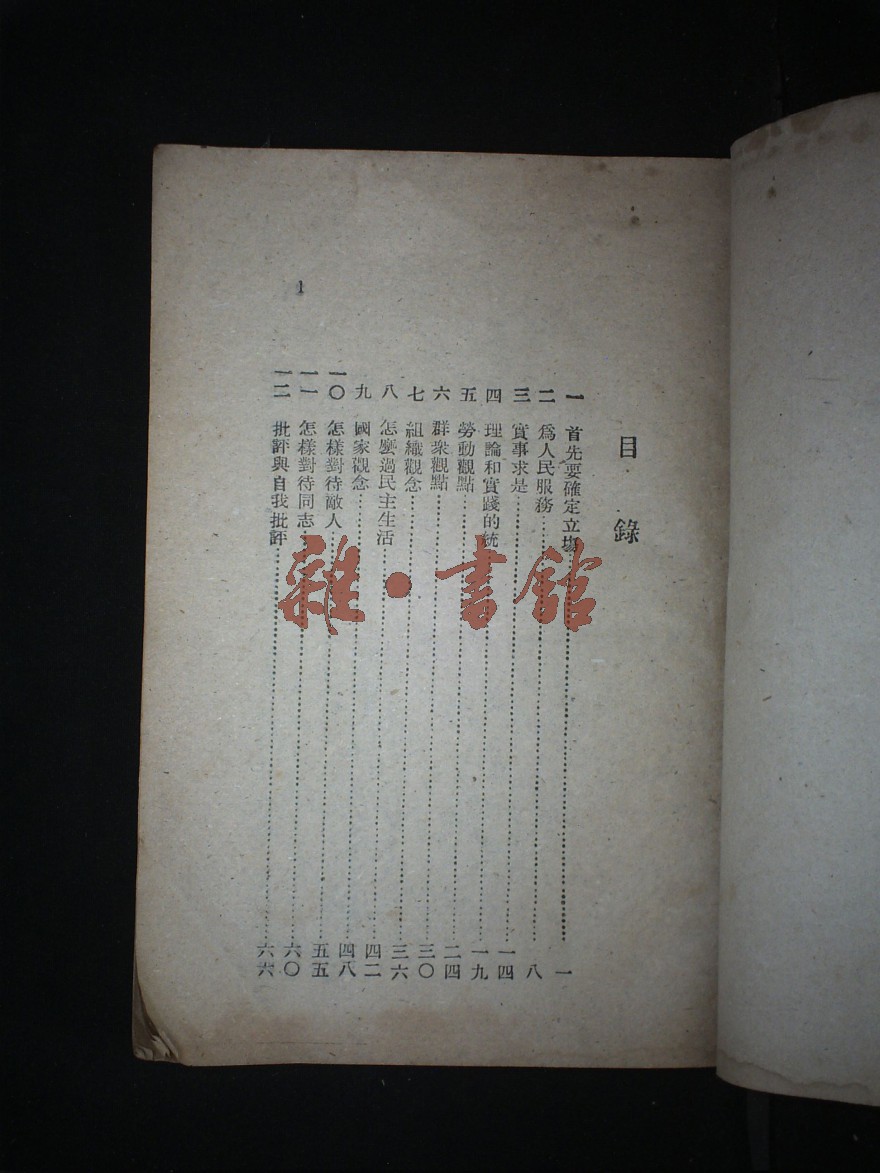 目錄
一 首先要確定立場 一
二 爲人民服務 八
三 實事求是 一四
四 理論和實踐的統一 一九
五 勞動觀點 二四
六 群衆觀點 三〇
七 組織觀念 三六
八 怎麼過民主生活 四二
九 國家觀念 四八
一〇 怎樣對待敵人 五五
一一 怎樣對待同志 六〇
一二 批評與自我批評 六六
1
雜·書館